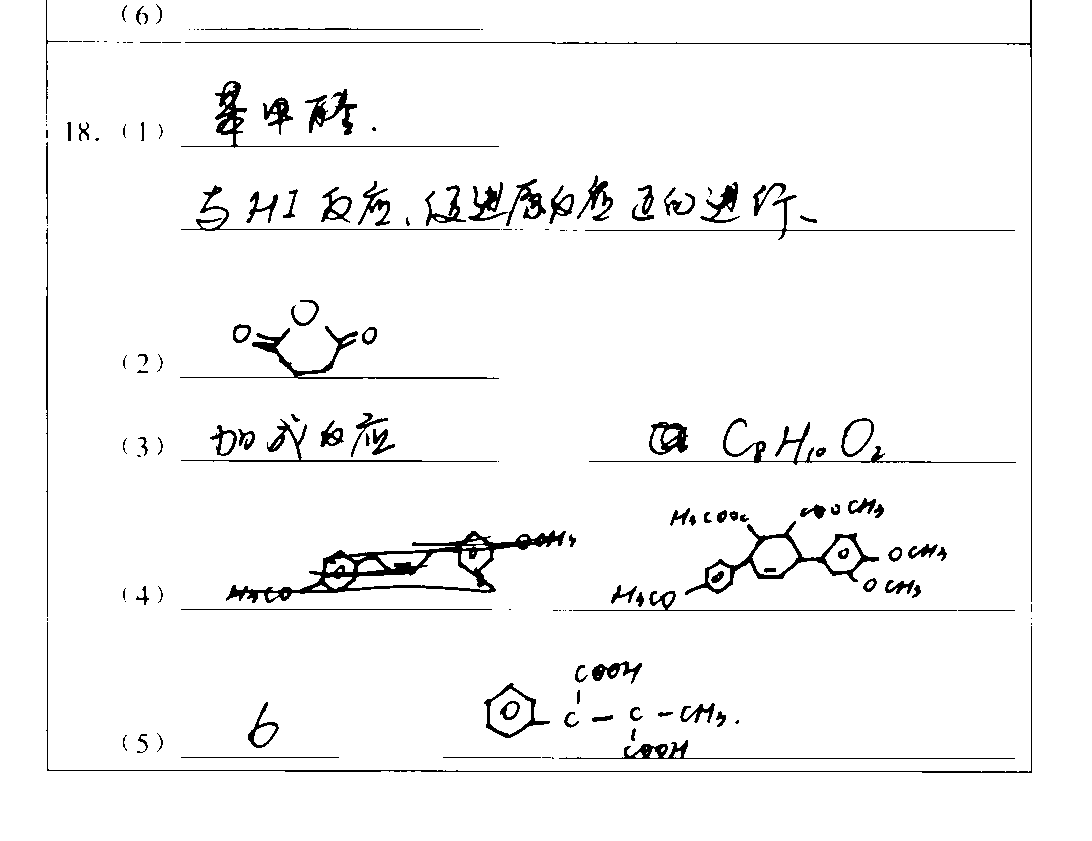 (6)
18. (1) 苯甲醛.
与HI反应、促进原反应正向进行、
(2) O O O
(3) 加成反应 C8H10O2
(4) H3CO OCH3 H3COOC COOCH3 H3CO OCH3 OCH3
(5) 6 COOH C - C - CH3. COOH